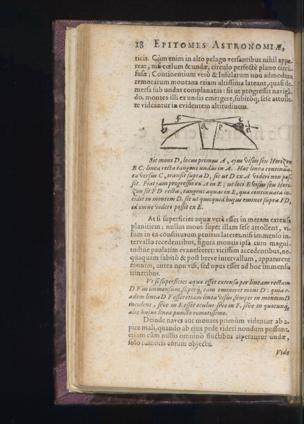 18 EPITOMES ASTRONOMIÆ,
ticis. Cùm enim in alto pelago versantibus nihil appa-
reat, nisi cœlum & undæ, circulo perfectè plano circū-
fusæ; Continentium verò & Insularum non admodum
remotarum montana etiam altissima lateant, quasi de-
mersa sub undas complanatis: fit ut progressis navigā-
do, montes illi ex undis emergere, subitoq; sese attolle-
re videantur in evidentem altitudinem.
Sit mons D, locus primus A, ejus visus seu Horizon
BC, linea recta tangens undas in A. Hæc linea continua-
ta versus C, transit supra D, sit ut D ex A videri non pos-
sit. Fiat jam progressio ex A in E; ut
sit FD recta, tangens aquas in E, quæ continuata in-
cidet in montem D. sit ut quicquid hujus eminet supra FD,
id omne videri possit ex E.
At si superficies aquæ verè esset in meram extensa
planitiem; nullus mons super illam sese attolleret, vi-
sum in ea constitutorum penitus lateret, nisi immenso in-
tervallo recedentibus, figura montis ipsa cum magni-
tudine paulatim evanesceret: vicissim accedentibus, ne-
quaquam subitò & post breve intervallum, appareret
eminere, antea non visi, sed opus esset ad hoc immensis
itineribus.
Ut si superficies aquæ esset extensa per lineam rectam
D F in immensum,
adem linea D F esset etiam linea visus, semper in montem D
incidens, sive in F esset oculus sive in E, sive in quocunq;
alio hujus lineæ puncto remotissimo.
Deinde naves aut montes primùm videntur ab a-
pice mali, quando ab ejus pede videri nondum possunt,
etiam cùm nullis omnino fluctibus asperantur undæ,
solo
Vide